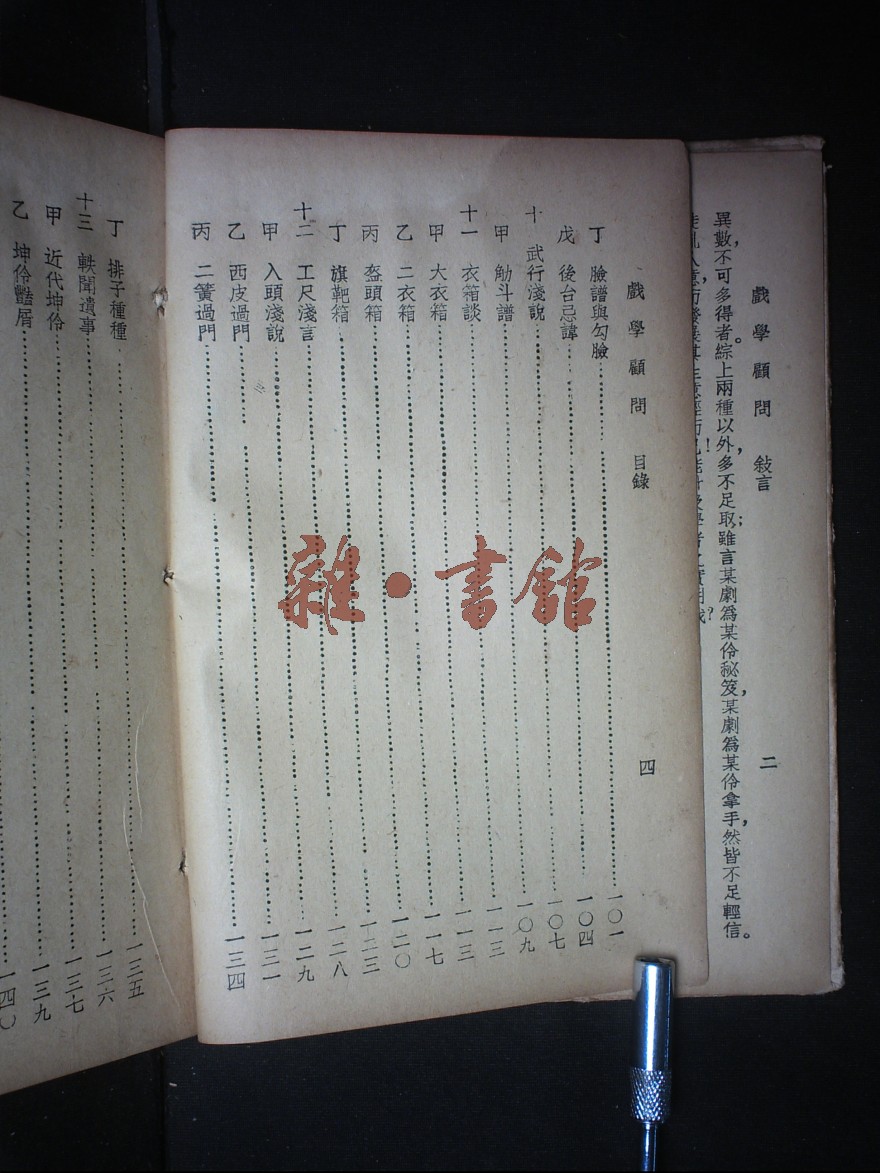 戲學顧問 敍言 二
異數，不可多得者。綜上兩種以外，多不足取；雖言某劇爲某伶秘笈，某劇爲某伶拿手，然皆不足輕信。
戲學顧問 目錄 四
丁 臉譜與勾臉……一〇一
戊 後台忌諱……一〇四
十 武行淺說……一〇七
甲 觔斗譜……一〇九
十一 衣箱談……一一三
甲 大衣箱……一一三
乙 二衣箱……一一七
丙 盔頭箱……一二〇
丁 旗靶箱……一二三
十二 工尺淺言……一二八
甲 入頭淺說……一二九
乙 西皮過門……一三一
丙 二簧過門……一三四
丁 排子種種……一三五
十三 軼聞遺事……一三六
甲 近代坤伶……一三七
乙 坤伶豔屑……一三九
一四〇
雜·書館